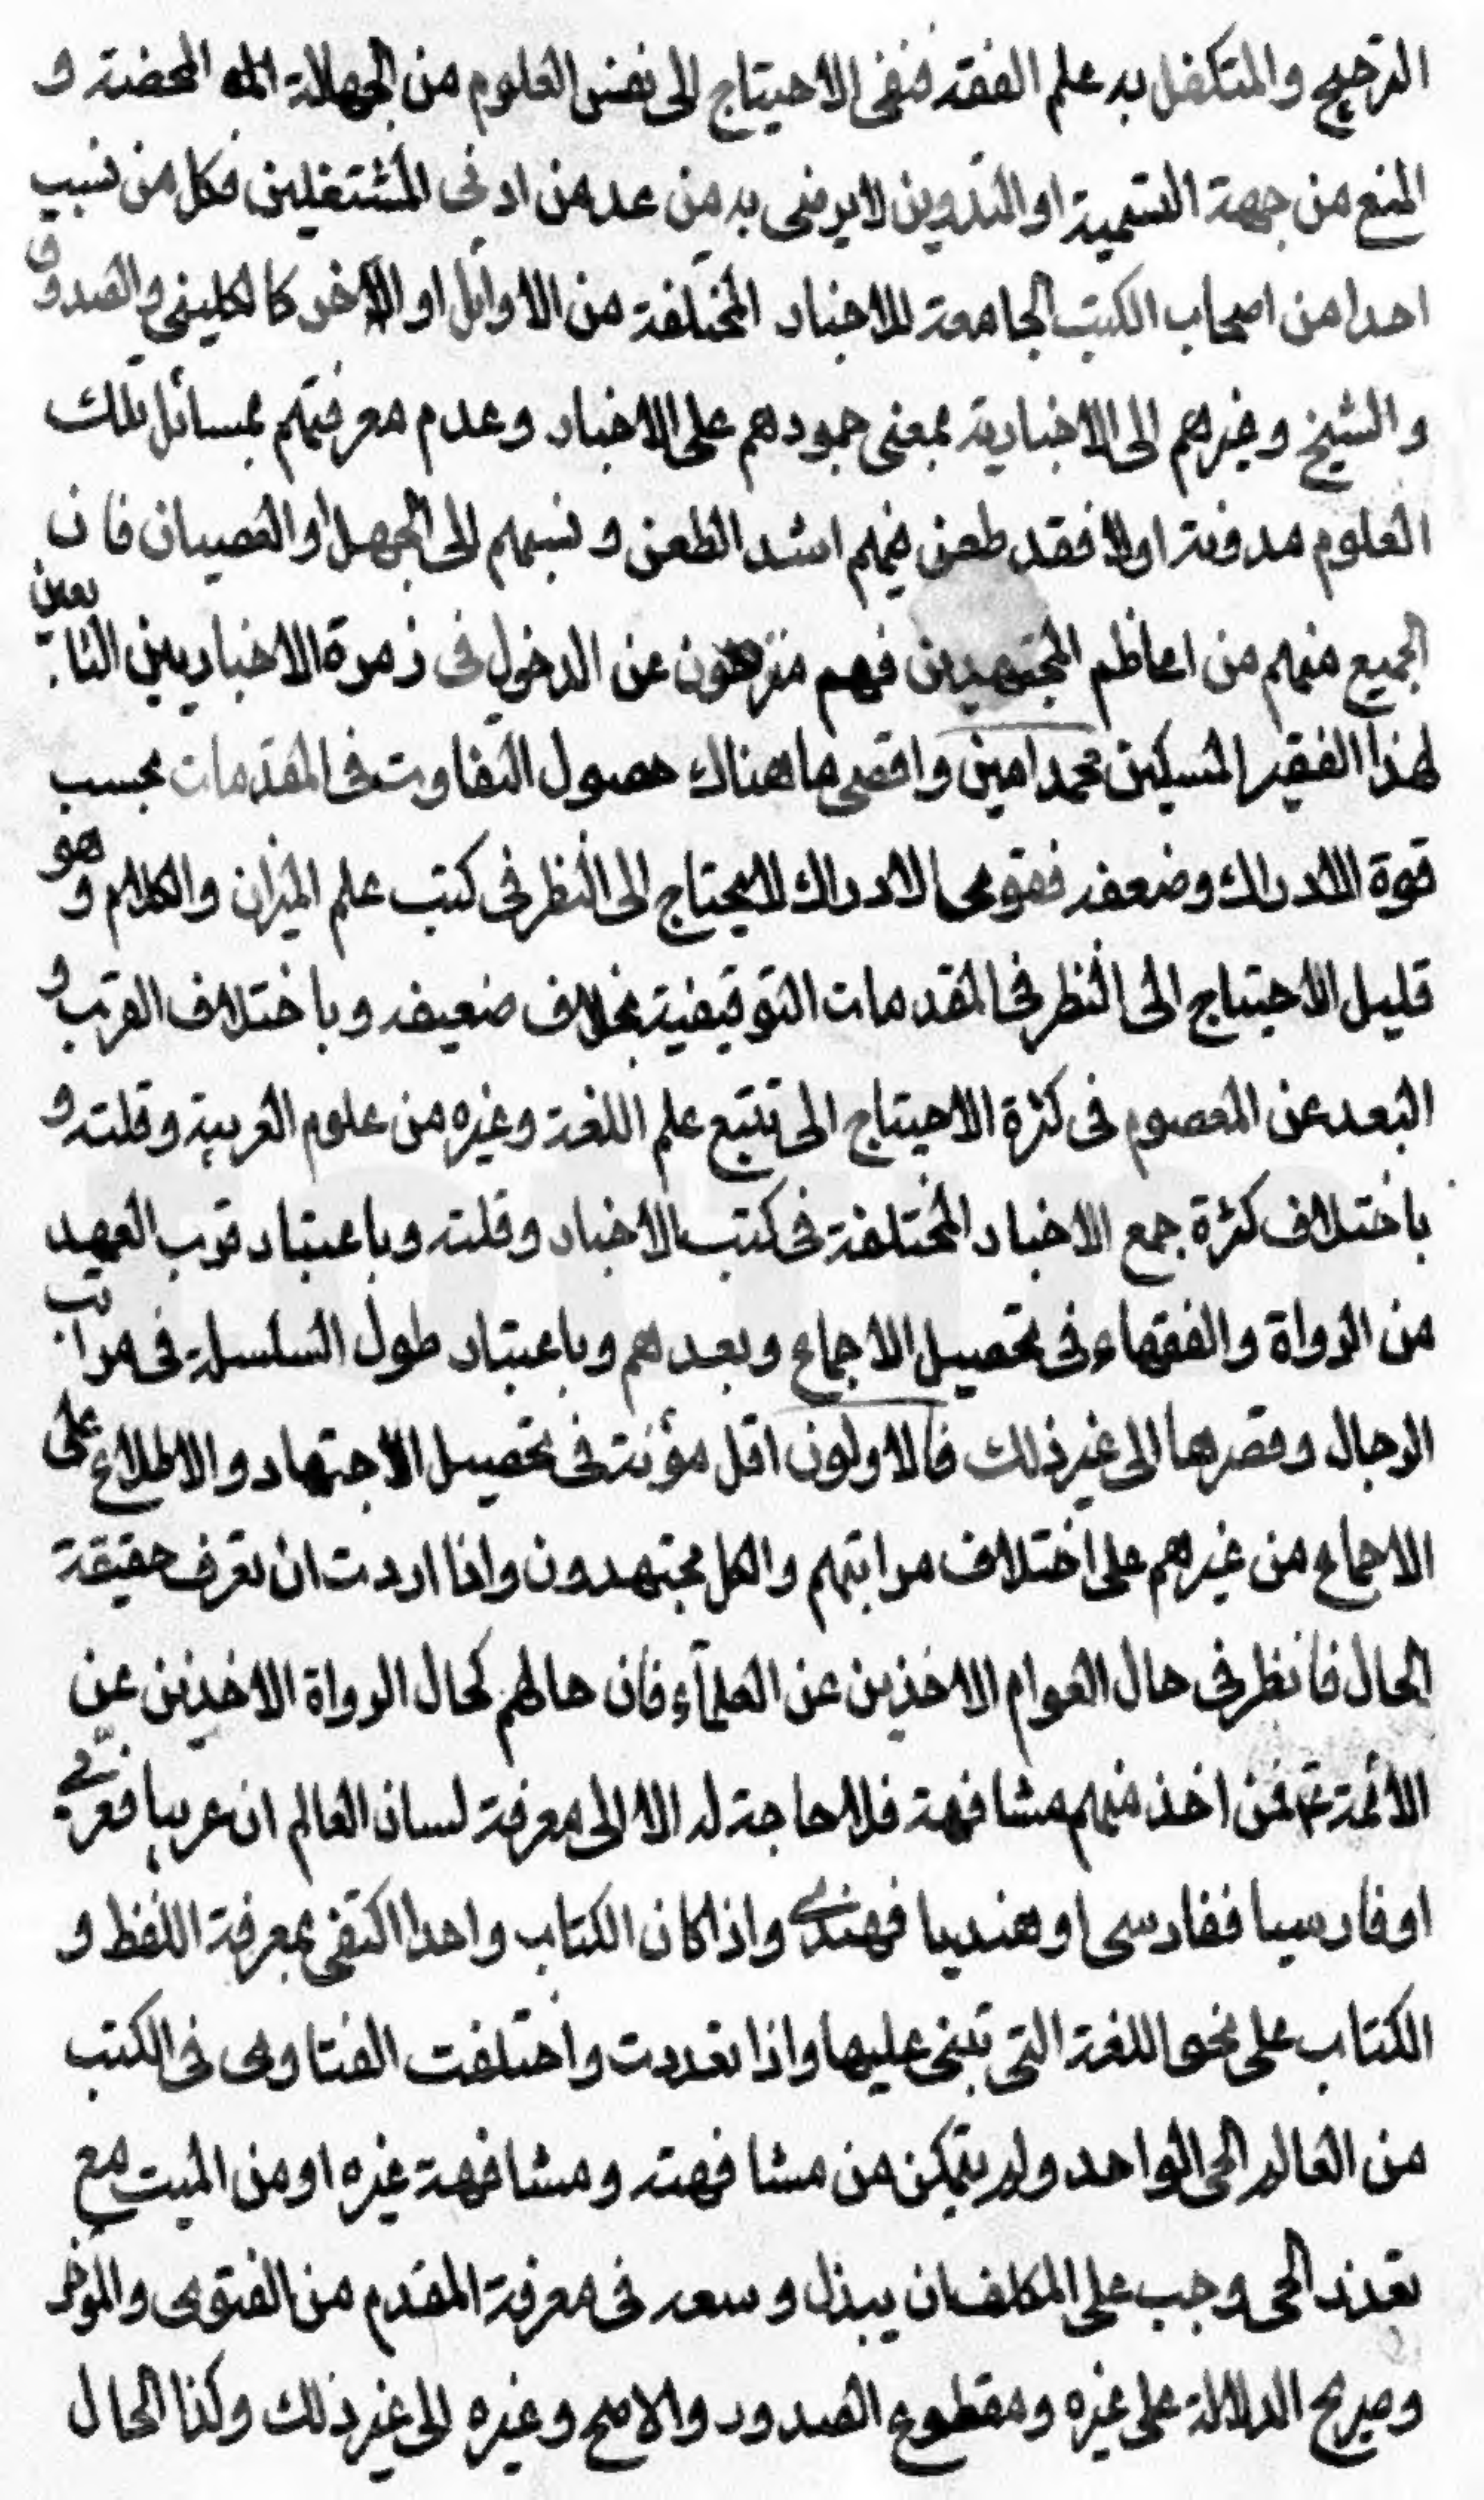 الترجيح والمتكفل به علم الفقه فنفى الاحتياج الى نفس العلوم من الجهالة المحضة و
المنع من جهة التسمية او التدوين لا يرضى به من عد من ادنى المشتغلين فكل من نسب
احدا من اصحاب الكتب الجامعة للاخبار المختلفة من الاوائل او الاخر كالكليني والصدوق
والشيخ وغيرهم الى الاخبارية بمعنى جمودهم على الاخبار وعدم معرفتهم بمسائل تلك
العلوم مدونة اولا فقد طعن فيهم اشد الطعن ونسبهم الى الجهل او العصيان فان
الجميع منهم من اعاظم المجتهدين فهم منزهون عن الدخول في زمرة الاخباريين التابعين
لهذا الفقير المسكين محمد امين واقصى ما هناك حصول التفاوت في المقدمات بحسب
قوة الادراك وضعفه فقوى الادراك لا يحتاج الى النظر في كتب علم الميزان والكلام وهو
قليل الاحتياج الى النظر في المقدمات التوقيفية بخلاف ضعيفه وباختلاف القرب و
البعد عن المعصوم في كثرة الاحتياج الى تتبع علم اللغة وغيره من علوم العربية وقلته و
باختلاف كثرة جمع الاخبار المختلفة في كتب الاخبار وقلته وباعتبار قرب العهد
من الرواة والفقهاء في تحصيل الاجماع وبعدهم وباعتبار طول السلسلة في مراتب
الرجال وقصرها الى غير ذلك فالاولون اقل مؤنة في تحصيل الاجتهاد والاطلاع على
الاجماع من غيرهم على اختلاف مراتبهم والكل مجتهدون واذا اردت ان تعرف حقيقة
الحال فانظر في حال العوام الاخذين عن العلمآء فان حالهم كحال الرواة الاخذين عن
الائمة ع فمن اخذ منهم مشافهة فلا حاجة له الا الى معرفة لسان العالم ان عربيا فعربي
او فارسيا ففارسى او هنديا فهندي واذا كان الكتاب واحدا اكتفى بمعرفة اللفظ و
الكتاب على نحو اللغة التي تبنى عليها واذا تعددت واختلفت الفتاوى في الكتب
من العالم الحى الواحد ولم يتمكن من مشافهته ومشافهة غيره او من الميت مع
تعذر الحى وجب على المكلف ان يبذل وسعه في معرفة المقدم من الفتوى والمؤخر
وصريح الدلالة على غيره ومقطوع الصدور والاصح وغيره الى غير ذلك وكذا الحال